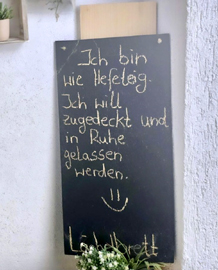 Ich bin
wie Hefeteig.
Ich will
zugedeckt und
in Ruhe
gelassen
werden.